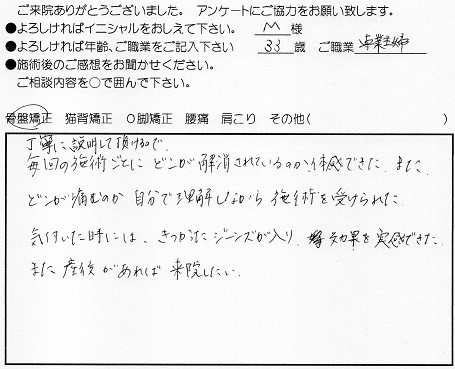 ご来院ありがとうございました。 アンケートにご協力をお願い致します。
●よろしければイニシャルをおしえて下さい。 M 様
●よろしければ年齢、ご職業をご記入下さい 33 歳 ご職業 専業主婦
●施術後のご感想をお聞かせください。
ご相談内容を○で囲んで下さい。
骨盤矯正 猫背矯正 O脚矯正 腰痛 肩こり その他( )
丁寧に説明して頂けるので、
毎回の施術ごとにどこが解消されているのか体感できた。また、
どこが痛むのか自分で理解しながら施術を受けられた。
気付いた時には、きつかったジーンズが入り、効果を実感できた。
また産後があれば来院したい。